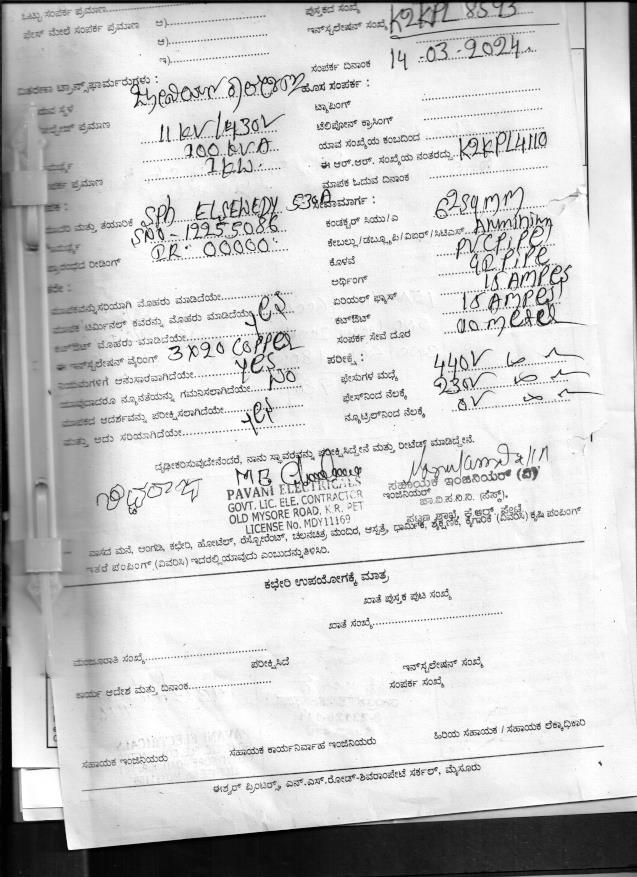 ಒಟ್ಟು ಸಂಪರ್ಕ ಪ್ರಮಾಣ
ಪುಸ್ತಕದ ಸಂಖ್ಯೆ
ಫೇಸ್ ಮೇಲೆ ಸಂಪರ್ಕ ಪ್ರಮಾಣ ಅ)
ಇನ್‌ಸ್ಟಲೇಷನ್ ಸಂಖ್ಯೆ K2KPL 8593
ಆ)
ಇ)
ಸಂಪರ್ಕ ದಿನಾಂಕ 14-03-2024
ವಿತರಣಾ ಟ್ರಾನ್ಸ್‌ಫಾರ್ಮರುಗಳು :
ಹೊಸ ಸಂಪರ್ಕ :
ಟ್ಯಾಪಿಂಗ್
ಪ್ರಮಾಣ 11 KV/430V
ಟೆಲಿಫೋನ್ ಕ್ರಾಸಿಂಗ್
100 KVA
ಯಾವ ಸಂಖ್ಯೆಯ ಕಂಬದಿಂದ
1KW.
ಈ ಆರ್.ಆರ್. ಸಂಖ್ಯೆಯ ನಂತರದ್ದು K2KPL4110
ಪ್ರಮಾಣ
ಮಾಪಕ ಓದುವ ದಿನಾಂಕ
ಮತ್ತು ತಯಾರಿಕೆ SPh
SNO-19255086
ಕಂಡಕ್ಟರ್ ಸಿಯು/ಎ 62sqmm
ರೀಡಿಂಗ್ DR: 00000
ಕೊಳವೆ PVCPiPe
ಅರ್ಥಿಂಗ್ GI PiPe
ಏರಿಯಲ್ ಫ್ಯೂಸ್ 15 AMPes
ಕಟ್‌ಔಟ್ 15 AMPes
ಸಂಪರ್ಕ ಸೇವೆ ದೂರ
ಮಾಪಕವನ್ನು ಸರಿಯಾಗಿ ಮೊಹರು ಮಾಡಿದೆಯೇ
ಮಾಪಕ ಟರ್ಮಿನಲ್ ಕವರನ್ನು ಮೊಹರು ಮಾಡಿದೆಯೇ yes
ಕಟ್‌ಔಟ್ ಮೊಹರು ಮಾಡಿದೆಯೇ
ಈ ಇನ್‌ಸ್ಟಲೇಷನ್ ವೈರಿಂಗ್ 3X20 COPPeR
ನಿಯಮಗಳಿಗೆ ಅನುಸಾರವಾಗಿದೆಯೇ yes
ಯಾವುದಾದರೂ ನ್ಯೂನತೆಯನ್ನು ಗಮನಿಸಲಾಗಿದೆಯೇ NO
ಮಾಪಕದ ಆದರ್ಶವನ್ನು ಪರೀಕ್ಷಿಸಲಾಗಿದೆಯೇ yes
ಮತ್ತು ಅದು ಸರಿಯಾಗಿದೆಯೇ
ಪರೀಕ್ಷೆ :
ಫೇಸುಗಳ ಮಧ್ಯೆ 440V
ಫೇಸ್‌ನಿಂದ ನೆಲಕ್ಕೆ 230V
ನ್ಯೂಟ್ರಲ್‌ನಿಂದ ನೆಲಕ್ಕೆ 0V
ದೃಢೀಕರಿಸುವುದೇನೆಂದರೆ, ನಾನು ಸ್ಥಾವರವನ್ನು ಪರೀಕ್ಷಿಸಿದ್ದೇನೆ ಮತ್ತು ರೀಟೆಡ್ ಮಾಡಿದ್ದೇನೆ.
PAVANI ELECTRICALS
GOVT. LIC. ELE. CONTRACTOR
OLD MYSORE ROAD, K.R. PET
LICENSE No. MDY11169
ಸಹಾಯಕ ಇಂಜಿನಿಯರ್ (ವಿ)
ಇಂಜಿನಿಯರ್
ವಾಸದ ಮನೆ, ಅಂಗಡಿ, ಕಛೇರಿ, ಹೋಟೆಲ್, ರೆಸ್ಟೋರೆಂಟ್, ಚಲನಚಿತ್ರ ಮಂದಿರ, ಆಸ್ಪತ್ರೆ, ಧಾರ್ಮಿಕ, ಶೈಕ್ಷಣಿಕ, ಕೈಗಾರಿಕೆ (ವಿವರಿಸಿ) ಕೃಷಿ ಪಂಪಿಂಗ್
ಇತರೆ ಪಂಪಿಂಗ್ (ವಿವರಿಸಿ) ಇದರಲ್ಲಿ ಯಾವುದು ಎಂಬುದನ್ನು ತಿಳಿಸಿರಿ.
ಕಛೇರಿ ಉಪಯೋಗಕ್ಕೆ ಮಾತ್ರ
ಖಾತೆ ಪುಸ್ತಕ ಪುಟ ಸಂಖ್ಯೆ
ಖಾತೆ ಸಂಖ್ಯೆ
ಮಂಜೂರಾತಿ ಸಂಖ್ಯೆ
ಪರೀಕ್ಷಿಸಿದೆ
ಇನ್‌ಸ್ಟಲೇಷನ್ ಸಂಖ್ಯೆ
ಕಾರ್ಯ ಆದೇಶ ಮತ್ತು ದಿನಾಂಕ
ಸಂಪರ್ಕ ಸಂಖ್ಯೆ
ಸಹಾಯಕ ಇಂಜಿನಿಯರು
ಸಹಾಯಕ ಕಾರ್ಯನಿರ್ವಾಹಕ ಇಂಜಿನಿಯರು
ಹಿರಿಯ ಸಹಾಯಕ / ಸಹಾಯಕ ಲೆಕ್ಕಾಧಿಕಾರಿ
ಈಶ್ವರ್ ಪ್ರಿಂಟರ್ಸ್, ಎನ್.ಎಸ್.ರೋಡ್-ಶಿವರಾಂಪೇಟೆ ಸರ್ಕಲ್, ಮೈಸೂರು